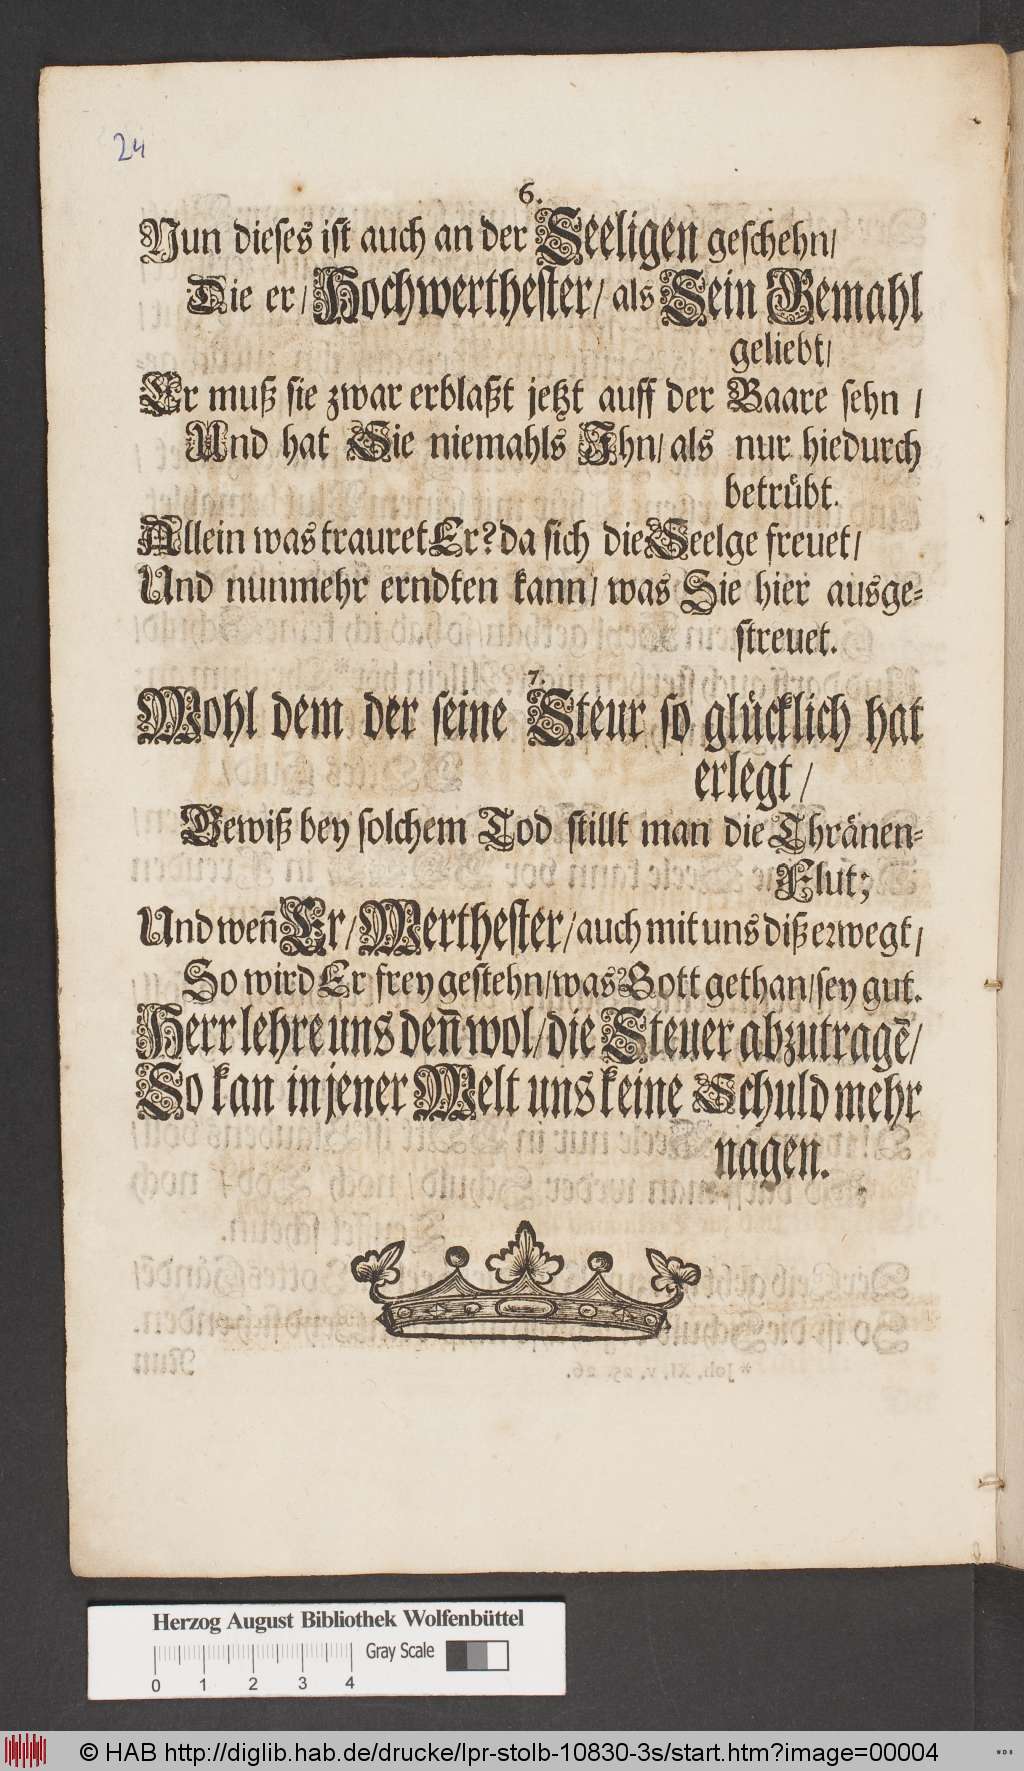 24
6.
Nun dieses ist auch an der Seeligen geschehn/
Die er/ Hochwerthester/ als Sein Gemahl
geliebt/
Er muß sie zwar erblaßt jetzt auff der Baare sehn /
Und hat Sie niemahls Ihn/ als nur hiedurch
betrübt.
Allein was trauret Er? da sich die Seelge freuet/
Und nunmehr erndten kann/ was Sie hier ausge-
streuet.
7.
Wohl dem der seine Steur so glücklich hat
erlegt /
Gewiß bey solchem Tod stillt man die Thränen-
Flut;
Und weñ Er/ Werthester/ auch mit uns diß erwegt/
So wird Er frey gestehn/ was Gott gethan/ sey gut.
Herr lehre uns deñ wol/ die Steuer abzutragẽ/
So kan in jener Welt uns keine Schuld mehr
nagen.
Herzog August Bibliothek Wolfenbüttel
Gray Scale
0 1 2 3 4
© HAB http://diglib.hab.de/drucke/lpr-stolb-10830-3s/start.htm?image=00004